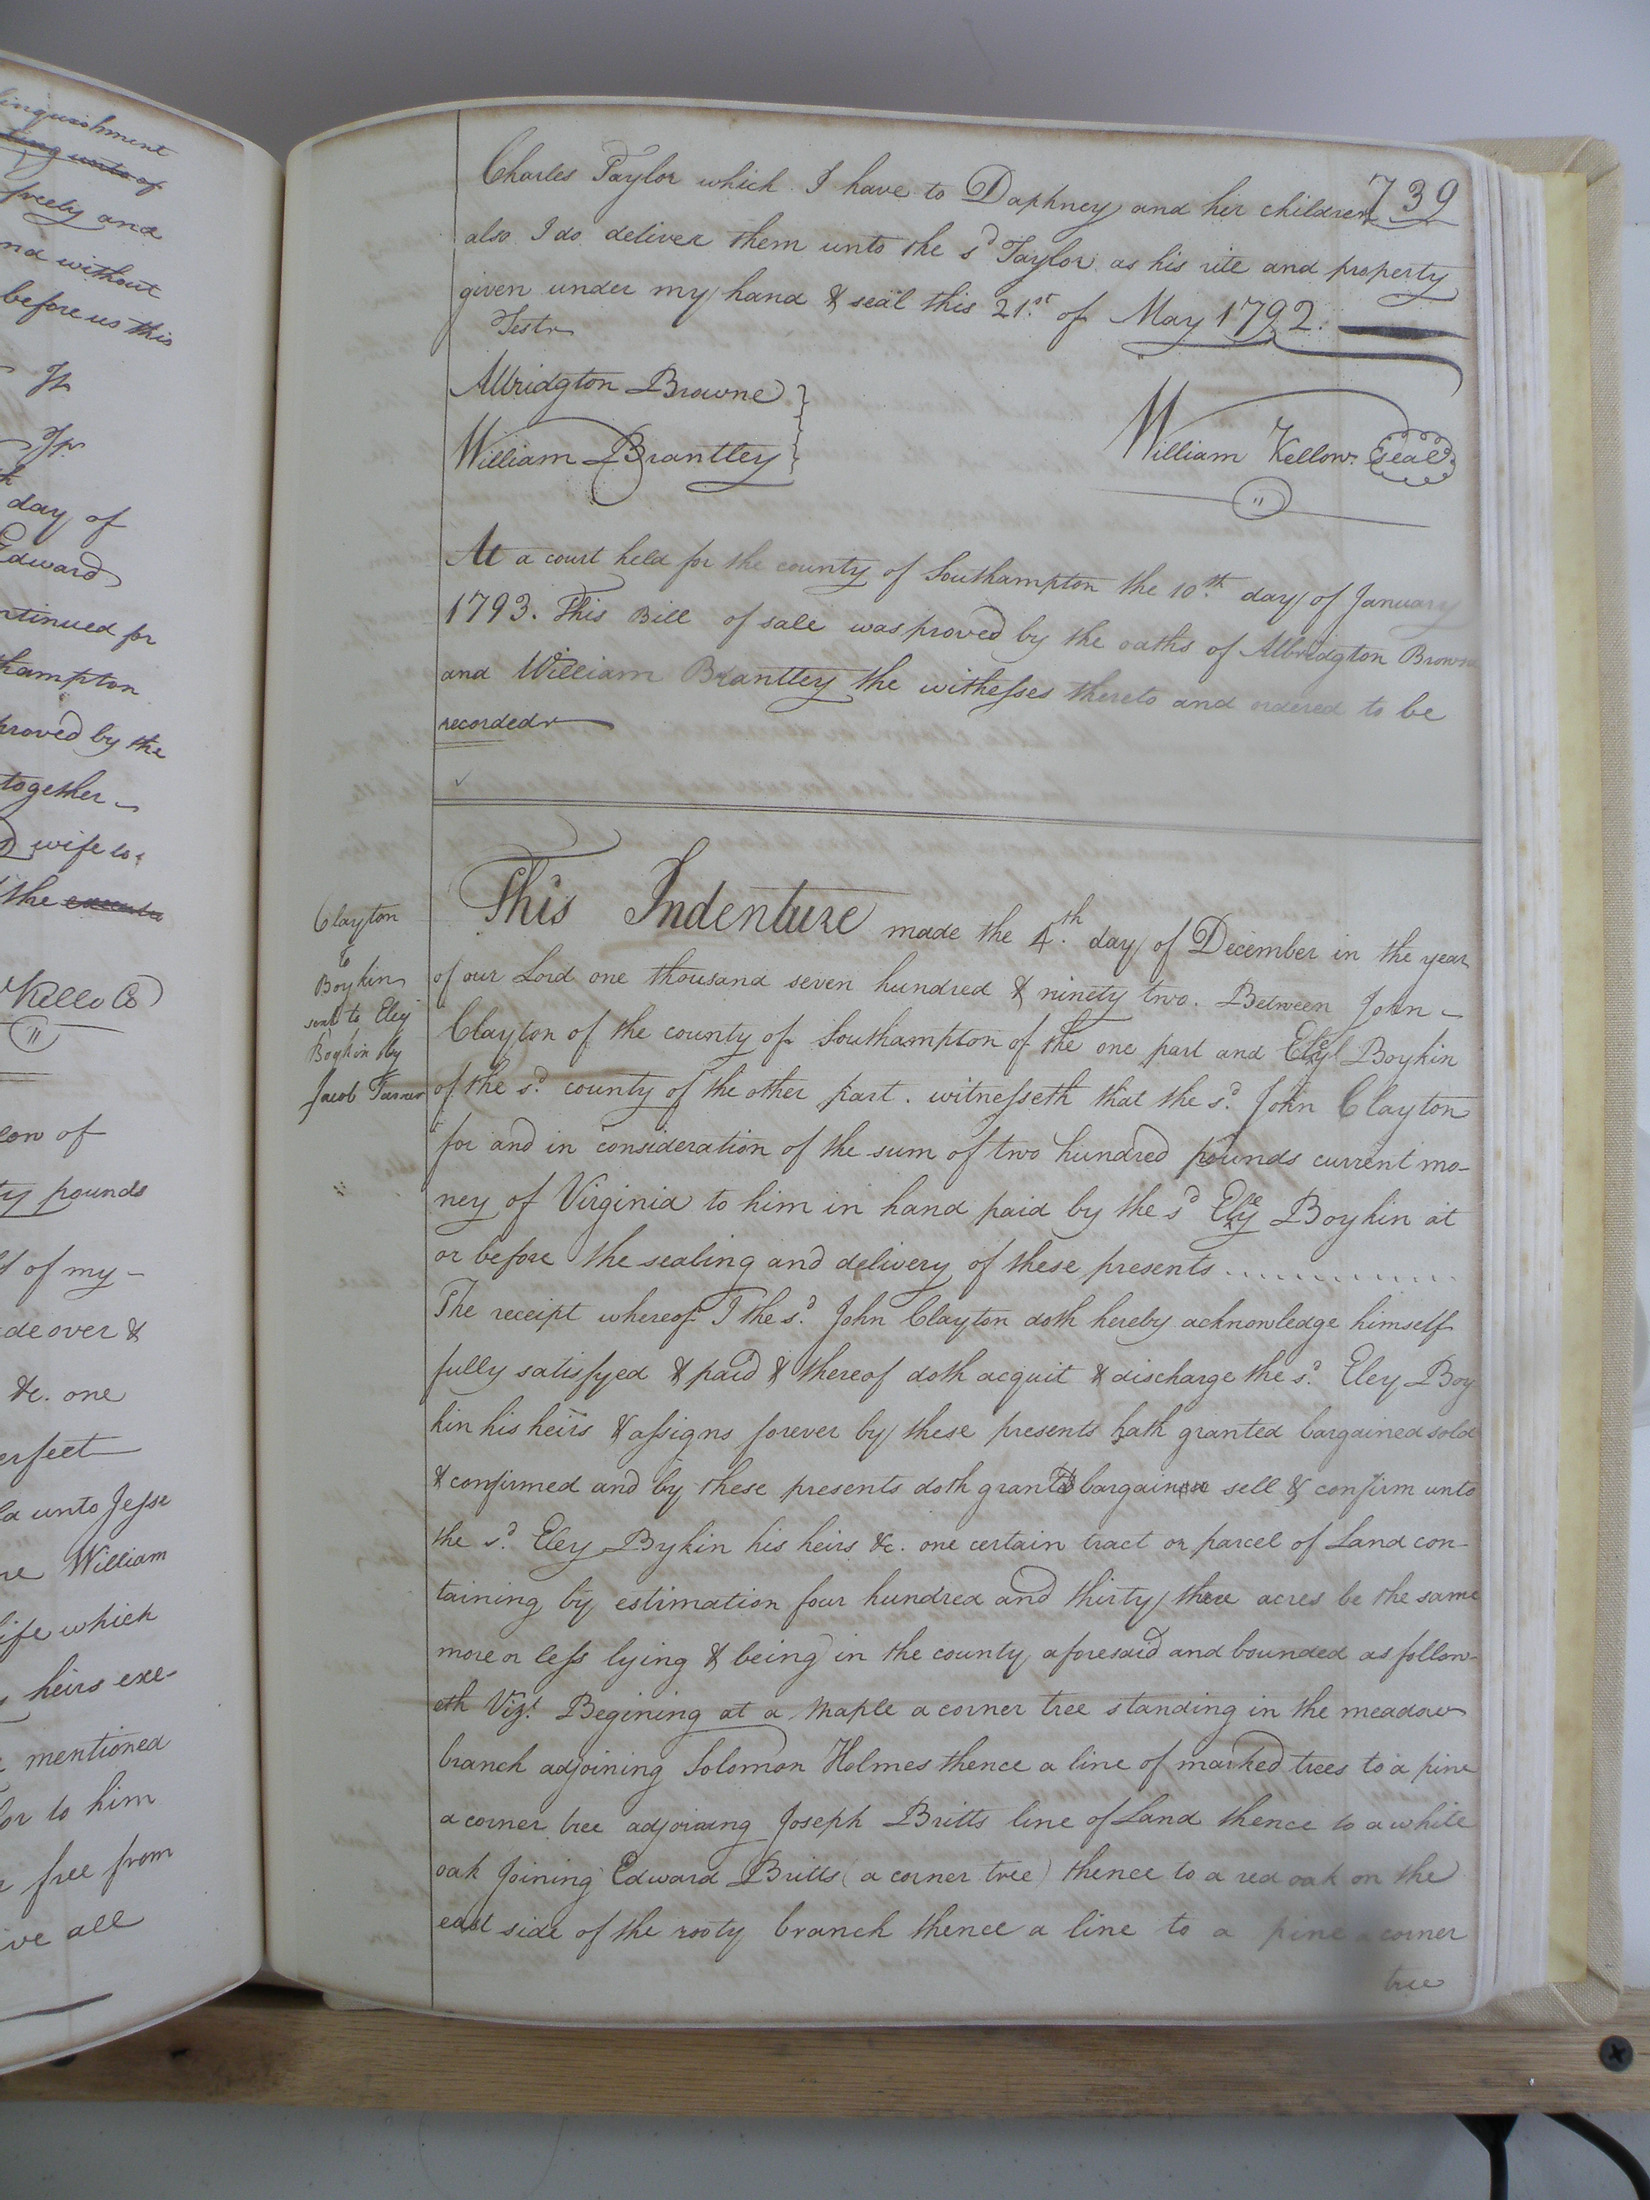 739
Charles Taylor which I have to Daphney and her children
also I do deliver them unto the sd Taylor as his rite and property
given under my hand & seal this 21st of May 1792.
Test
Albridgton Browne
William Brantley
William Kellow. Seal
At a court held for the county of Southampton the 10th day of January
1793. This Bill of sale was proved by the oaths of Albridgton Browne
and William Brantley the witnesses thereto and ordered to be
recorded
Clayton
to
Boykin
sent to Eley
Boykin by
Jacob Turner
This Indenture made the 4th day of December in the year
of our Lord one thousand seven hundred & ninety two. Between John
Clayton of the county of Southampton of the one part and Eley Boykin
of the sd. county of the other part. witnesseth that the sd. John Clayton
for and in consideration of the sum of two hundred pounds current mo-
ney of Virginia to him in hand paid by the sd Eley Boykin at
or before the sealing and delivery of these presents..............
The receipt whereof I the sd. John Clayton doth hereby acknowledge himself
fully satisfyed & paid & thereof doth acquit & discharge the sd. Eley Boy
kin his heirs & assigns forever by these presents hath granted bargained sold
& confirmed and by these presents doth grant bargain sell & confirm unto
the sd. Eley Bykin his heirs &c. one certain tract or parcel of Land con-
taining by estimation four hundred and thirty three acres be the same
more or less lying & being in the county aforesaid and bounded as follow-
eth Vizt. Begining at a maple a corner tree standing in the meadow
branch adjoining Solomon Holmes thence a line of marked trees to a pine
a corner tree adjoining Joseph Britts line of Land thence to a white
oak Joining Edward Britts (a corner tree) thence to a red oak on the
east side of the rooty branch thence a line to a pine a corner
tree
linquishment
freely and
nd without
before us this
day of
Edward
ntinued for
hampton
proved by the
together
wife to
the
Kello C
on of
ty pounds
of my
de over &
&c. one
erfect
la unto Jesse
re William
life which
heirs exe-
mentioned
or to him
free from
ive all